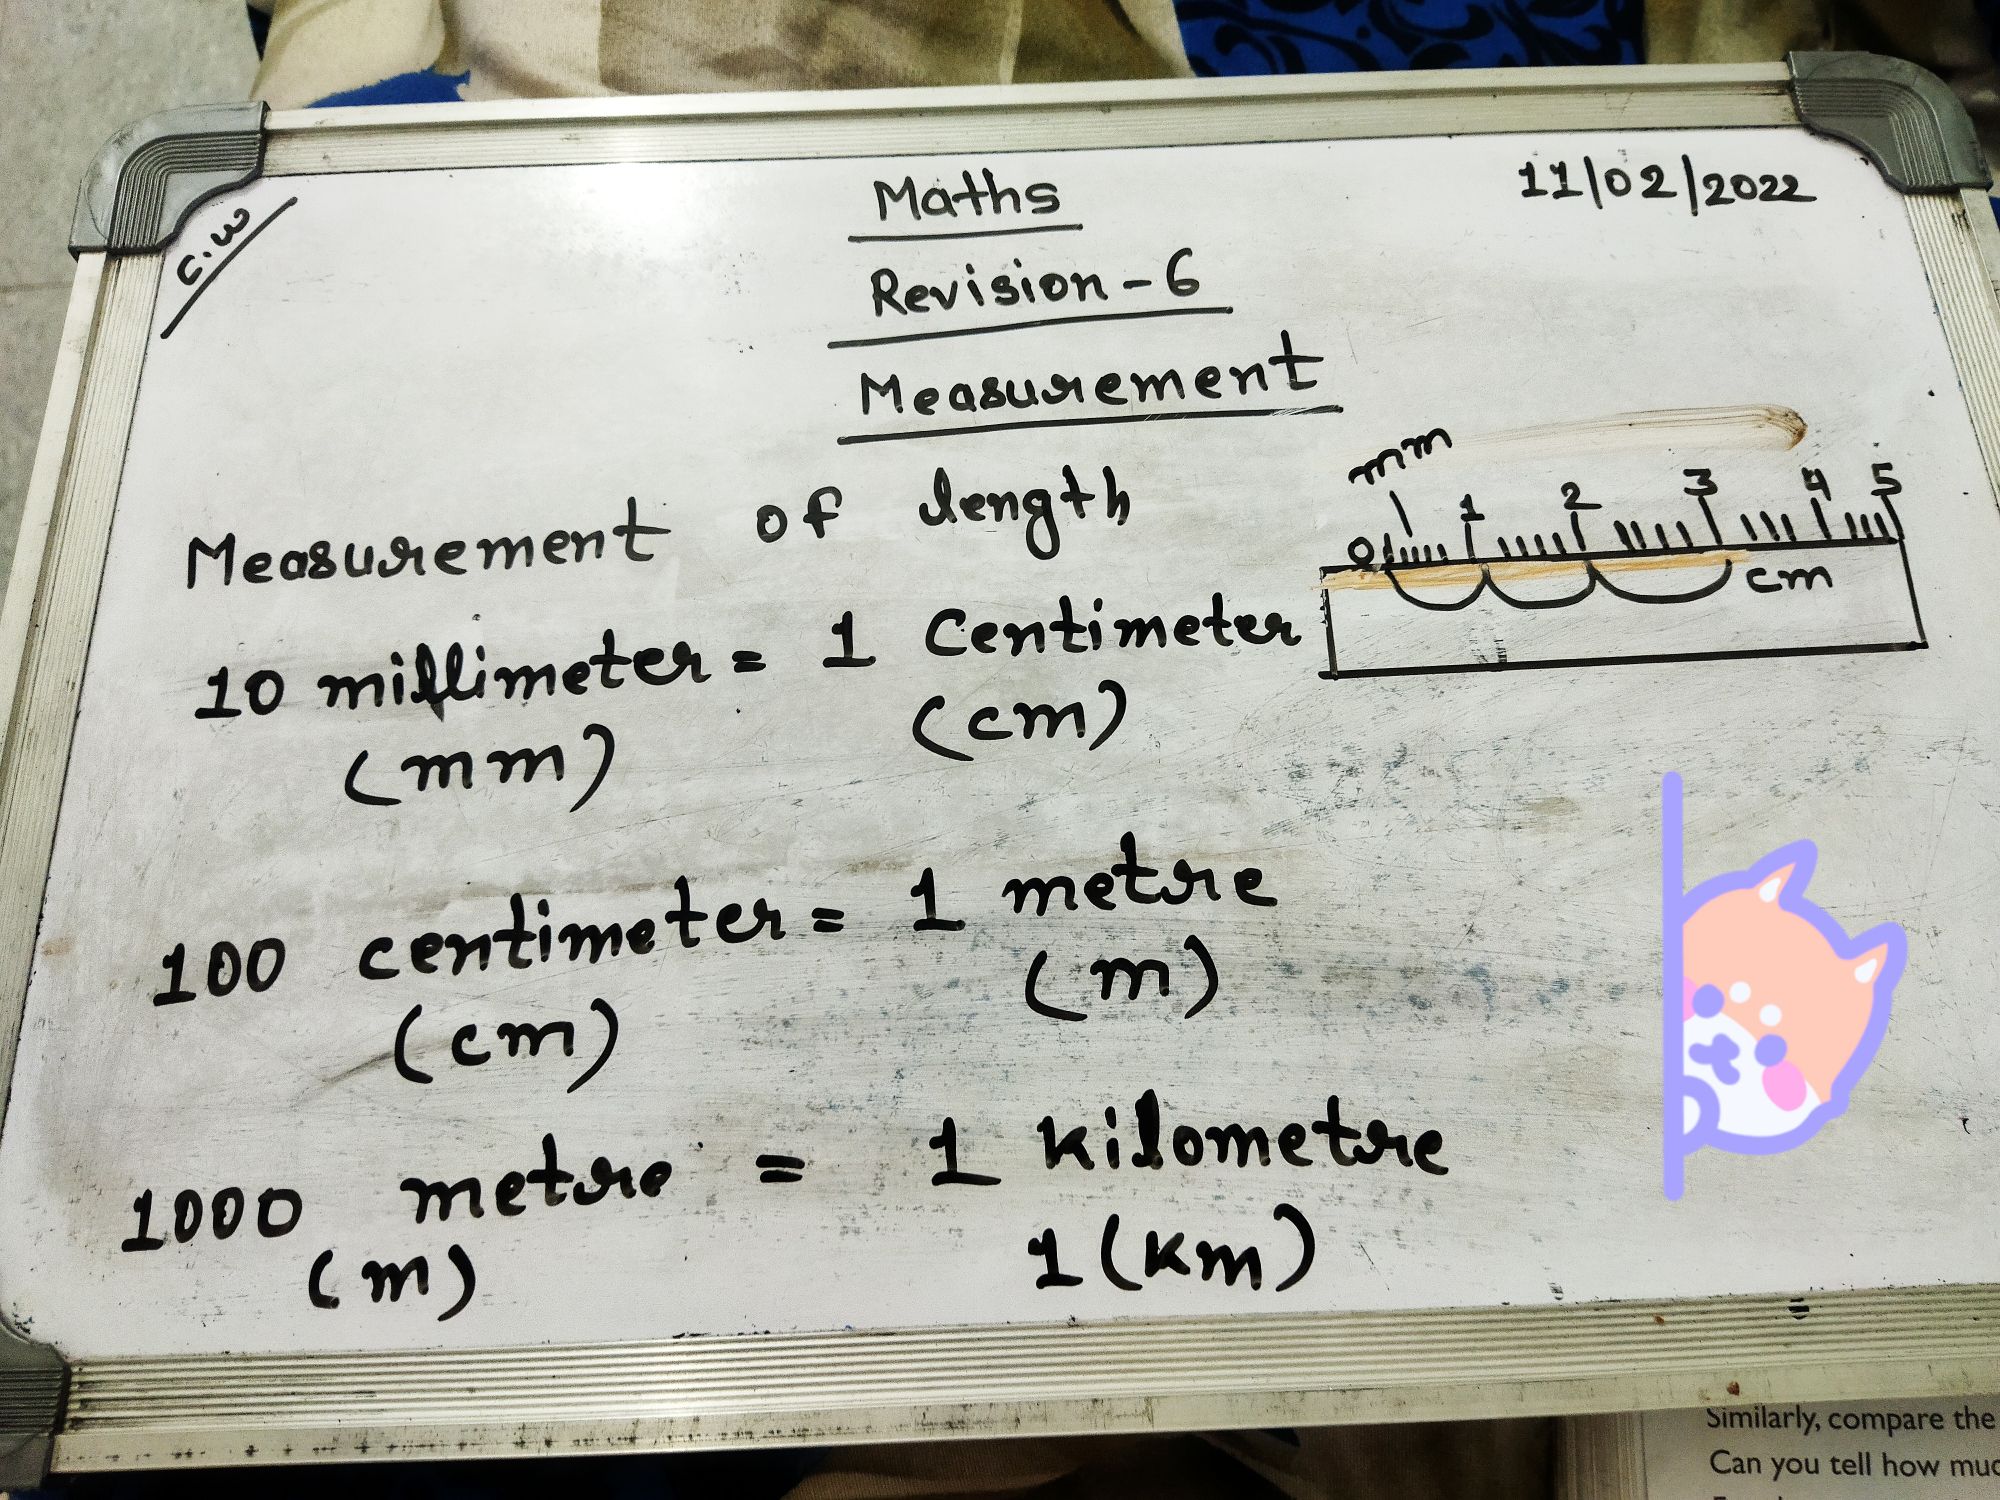 C.W
Maths
11/02/2022
Revision-6
Measurement
Measurement of length
mm
0 1 2 3 4 5
cm
10 millimeter = 1 Centimeter
(mm) (cm)
100 centimeter = 1 metre
(cm) (m)
1000 metre = 1 kilometre
(m) 1 (km)
Similarly, compare the
Can you tell how muc